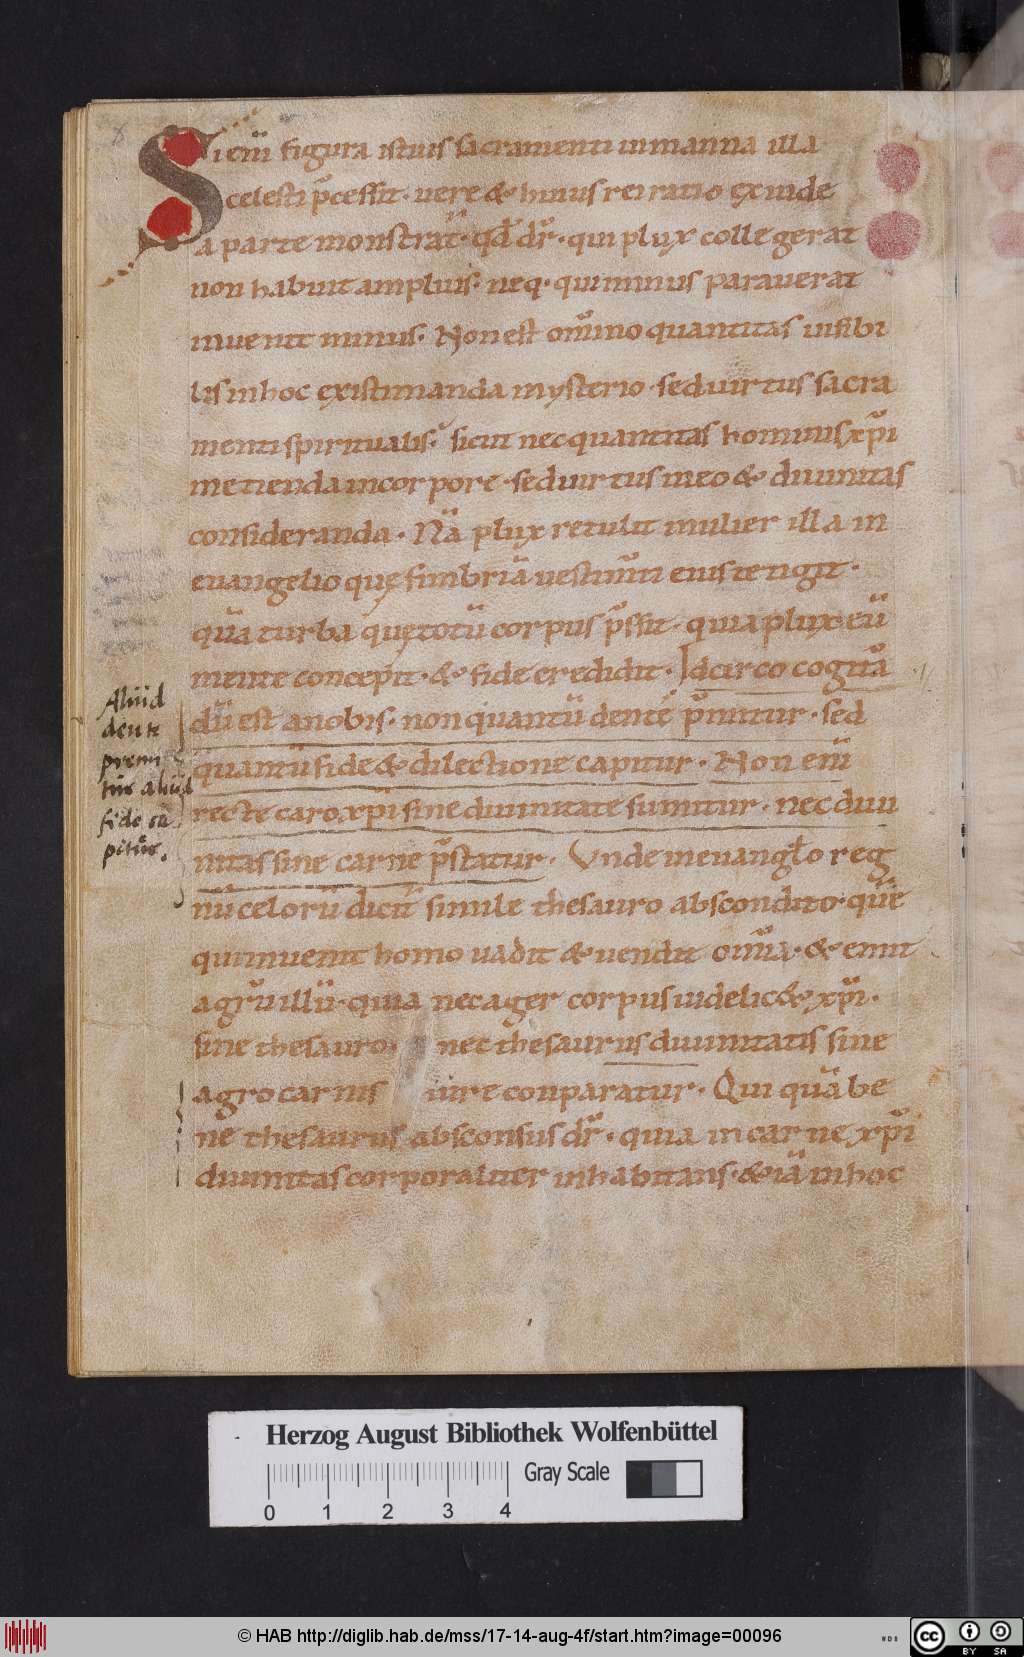 Si em̄ figura istius sacramenti in manna illa
celesti p̄cessit· uere & huius rei ratio exinde
a parte monstrat᷑· qd̄ dr̄· qui plux collegerat
non habuit amplius· neq· qui minus parauerat
inuenit minus· Non est om̄ino quantitas uisibi
lis in hoc existimanda mysterio· sed uirtus sacra
menti spiritualis· sicut nec quantitas hominis xp̄i
metienda in corpore· sed uirtus in eo & diuinitas
consideranda· Nā plux retulit mulier illa in
euangelio que fimbriā uestim̄ti eius tetigit·
quā turba que totū corpus p̄ssit· quia plux eū
mente concepit· & fide credidit· Idcirco cogitā
dū est a nobis· non quantū dente p̄mitur· sed
quantū fide & dilectione capitur· Non em̄
recte caro xp̄i sine diuinitate sumitur· nec diui
nitas sine carne p̄statur· Vnde in euanglo reg
nū celorū dictū simile thesauro abscondito· quē
qui inuenit homo uadit & uendit om̄ia· & emit
agrū illū· quia nec ager corpus uidelic& xp̄i·
sine thesauro· nec thesaurus diuinitatis sine
agro carnis iure conparatur· Qui quā be
ne thesaurus absconsus dr̄· quia in carne xp̄i
diuinitas corporaliter inhabitans· & iā in hoc
Aliud
dente
premi
tur aliud
fide ca
pitur.
Herzog August Bibliothek Wolfenbüttel
Gray Scale
0 1 2 3 4
© HAB http://diglib.hab.de/mss/17-14-aug-4f/start.htm?image=00096
WDB
cc BY SA